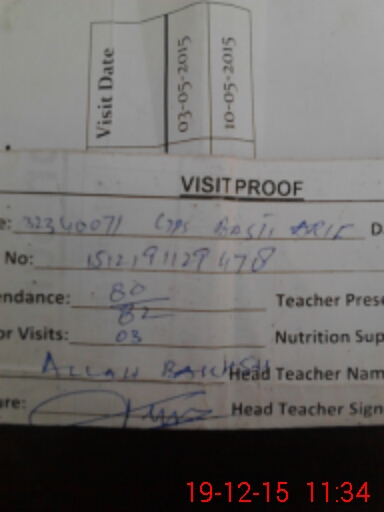 Visit Date
03-05-2015
10-05-2015
VISIT PROOF
e: 32340071 GPS BASTI ARIF D
No:
endance: 80/82 Teacher Prese
or Visits: 03 Nutrition Sup
ALLAH BAKHSH Head Teacher Nam
ure: Head Teacher Sign
19-12-15 11:34